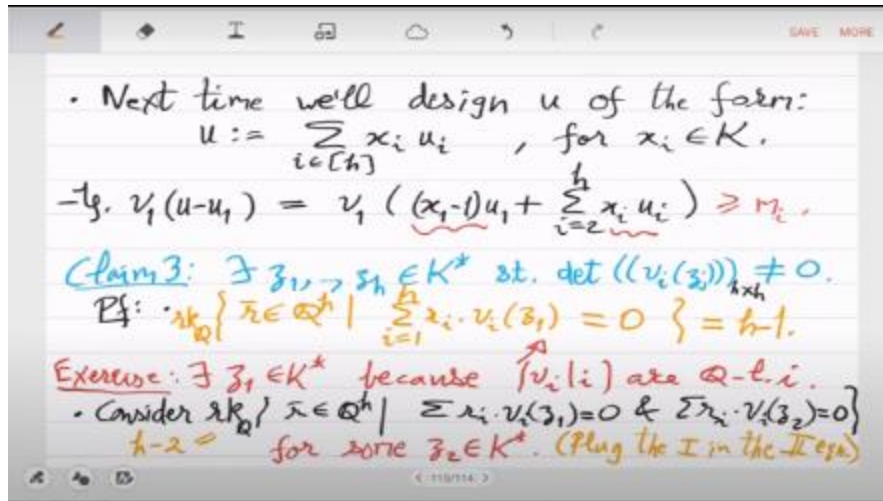 SAVE MORE
• Next time we'll design u of the form:
u := Σ_{i∈[h]} x_i u_i , for x_i ∈ K.
-Eg. v_1(u-u_1) = v_1((x_1-1)u_1 + Σ_{i=2}^{h} x_i u_i) ≥ m_i.
Claim 3: ∃ z_1,..,z_h ∈ K* st. det((v_i(z_j)))_{h×h} ≠ 0.
Pf: • rk_Q{ r̄ ∈ Q^h | Σ_{i=1}^{h} r_i · v_i(z_1) = 0 } = h-1.
Exercise: ∃ z_1 ∈ K* because {v_i|i} are Q-l.i.
• Consider rk_Q{ r̄ ∈ Q^h | Σ r_i·v_i(z_1)=0 & Σ r_i·v_i(z_2)=0}
h-2 = for some z_2 ∈ K*. (Plug the I in the II eqn.)
< 113/114 >